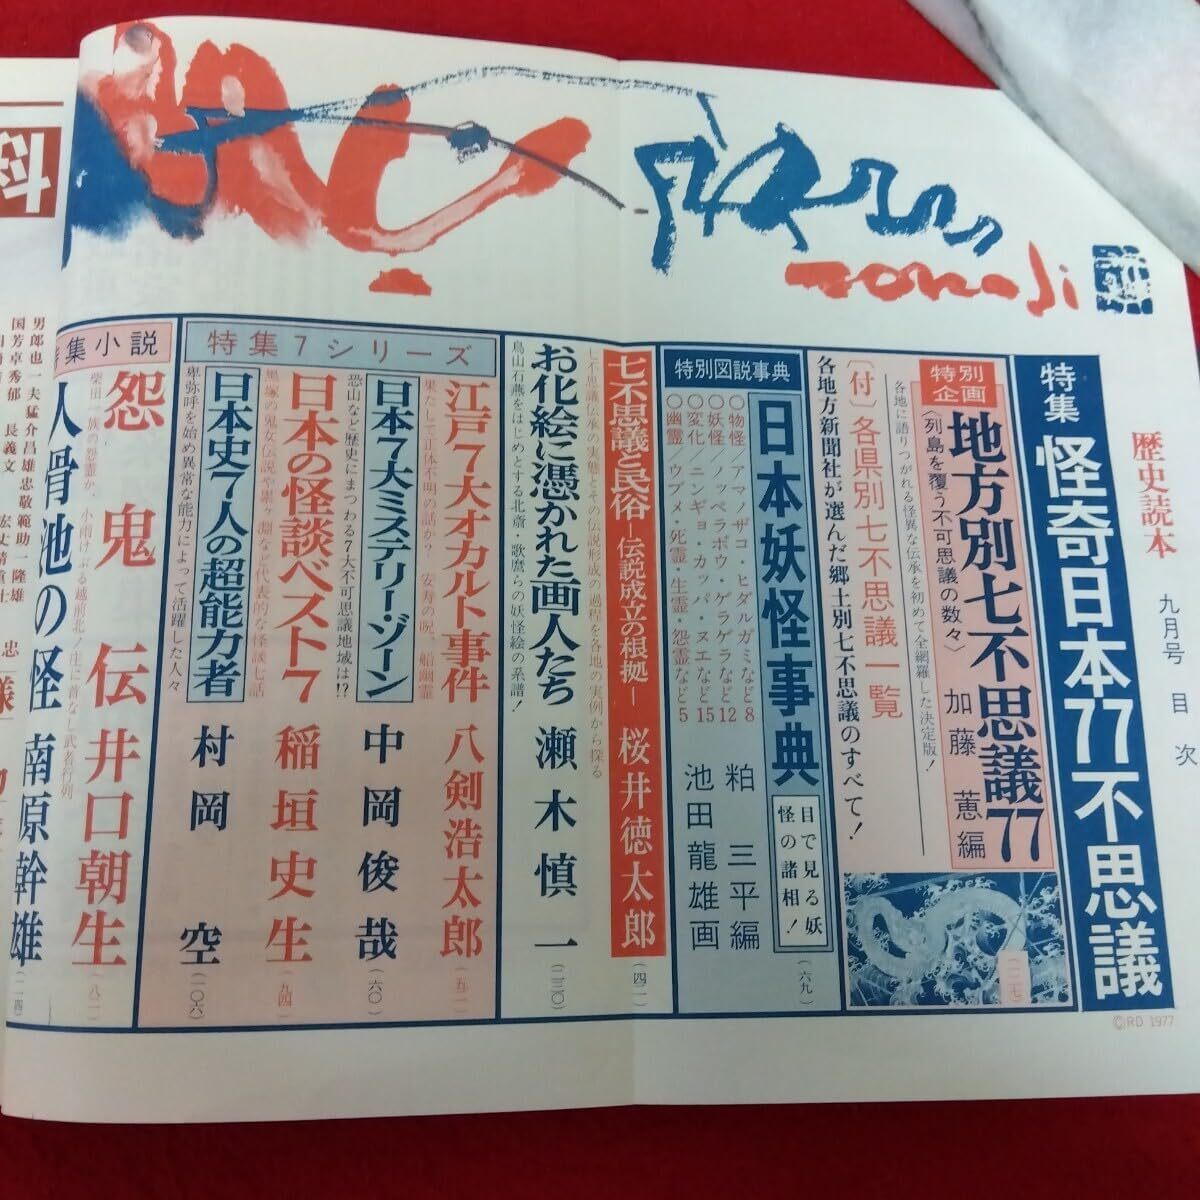 歴史読本
九月号
目次
特集 怪奇日本77不思議
特別企画
地方別七不思議77
〈列島を覆う不可思議の数々〉
加藤 蕙編
各地に語りつがれる怪異な伝承を初めて全網羅した決定版！
〔付〕各県別七不思議一覧
各地方新聞社が選んだ郷土別七不思議のすべて！
特別図説事典
日本妖怪事典
目で見る妖怪の諸相！
(六九)
○物怪／アマノザコ・ヒダルガミなど8
○妖怪／ノッペラボウ・ゲラゲラなど12
○変化／ニンギョ・カッパ・ヌエなど15
○幽霊／ウブメ・死霊・生霊・怨霊など5
粕 三平編
池田龍雄画
七不思議と民俗 ―伝説成立の根拠― 桜井徳太郎
(四二)
七不思議伝承の実態とその伝説形成の過程を各地の実例から探る
お化絵に憑かれた画人たち 瀬木慎一
(二三〇)
鳥山石燕をはじめとする北斎・歌麿らの妖怪絵の系譜！
特集7シリーズ
江戸7大オカルト事件 八剣浩太郎
(五二)
果たして正体不明の話か？ 安寿の呪、船幽霊
日本7大ミステリー・ゾーン 中岡俊哉
(六〇)
恐山など歴史にまつわる7大不可思議地域は!?
日本の怪談ベスト7 稲垣史生
(九四)
黒塚の鬼女伝説や累ヶ淵など代表的な怪談七話
日本史7人の超能力者 村岡 空
(一〇六)
卑弥呼を始め異常な能力によって活躍した人々
集小説
怨鬼伝 井口朝生
(八二)
柴田一族の怨霊か、小雨けぶる越前北ノ庄に“首なし”武者行列
人骨池の怪 南原幹雄
(一一四)
©RD 1977